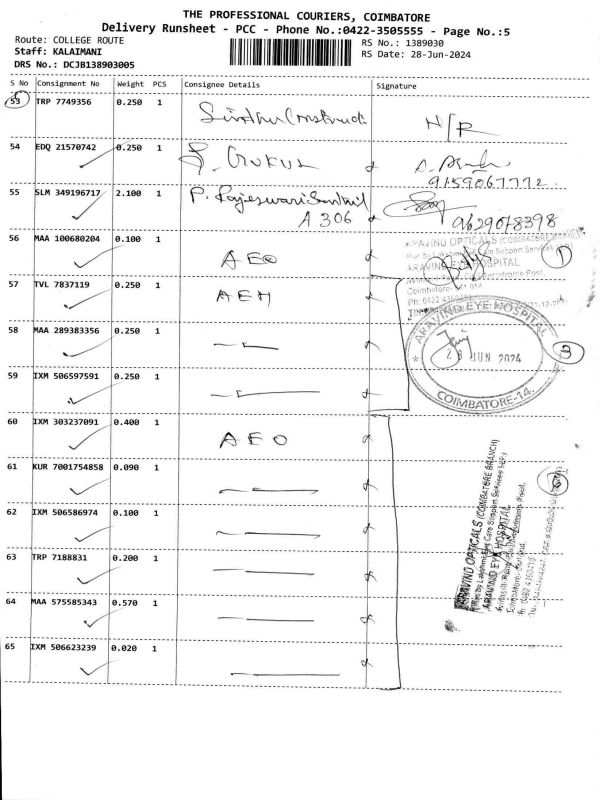 THE PROFESSIONAL COURIERS, COIMBATORE
Delivery Runsheet - PCC - Phone No.:0422-3505555 - Page No.:5
Route: COLLEGE ROUTE
RS No.: 1389030
Staff: KALAIMANI
RS Date: 28-Jun-2024
DRS No.: DCJB138903005
S No Consignment No Weight PCS Consignee Details Signature
53 TRP 7749356 0.250 1 N/R
54 EDQ 21570742 0.250 1 GOKUL
9159067772
55 SLM 349196717 2.100 1 P. Rajeswari Senthil
A 306 9629078398
56 MAA 100680204 0.100 1 AEO
ARAVIND OPTICALS (COIMBATORE BRANCH)
ARAVIND EYE HOSPITAL
1
57 TVL 7837119 0.250 1 AEH
58 MAA 289383356 0.250 1
ARAVIND EYE HOSPITAL
28 JUN 2024
COIMBATORE-14.
3
59 IXM 506597591 0.250 1
60 IXM 303237091 0.400 1 AEO
61 KUR 7001754858 0.090 1
62 IXM 506586974 0.100 1
63 TRP 7188831 0.200 1
64 MAA 575585343 0.570 1
65 IXM 506623239 0.020 1
ARAVIND OPTICALS (COIMBATORE BRANCH)
ARAVIND EYE HOSPITAL